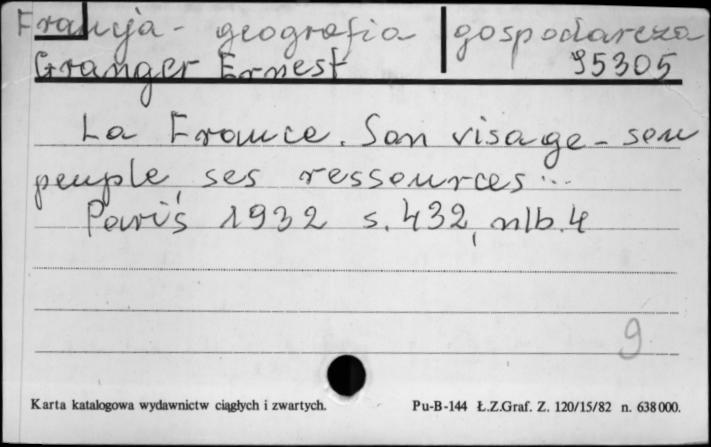 Francja - geografia gospodarcza
Granger Ernest 95305
La France. Son visage - son
peuple, ses ressources...
Paris 1932 s. 432, nlb. 4
9
Karta katalogowa wydawnictw ciągłych i zwartych. Pu-B-144 Ł.Z.Graf. Z. 120/15/82 n. 638000.